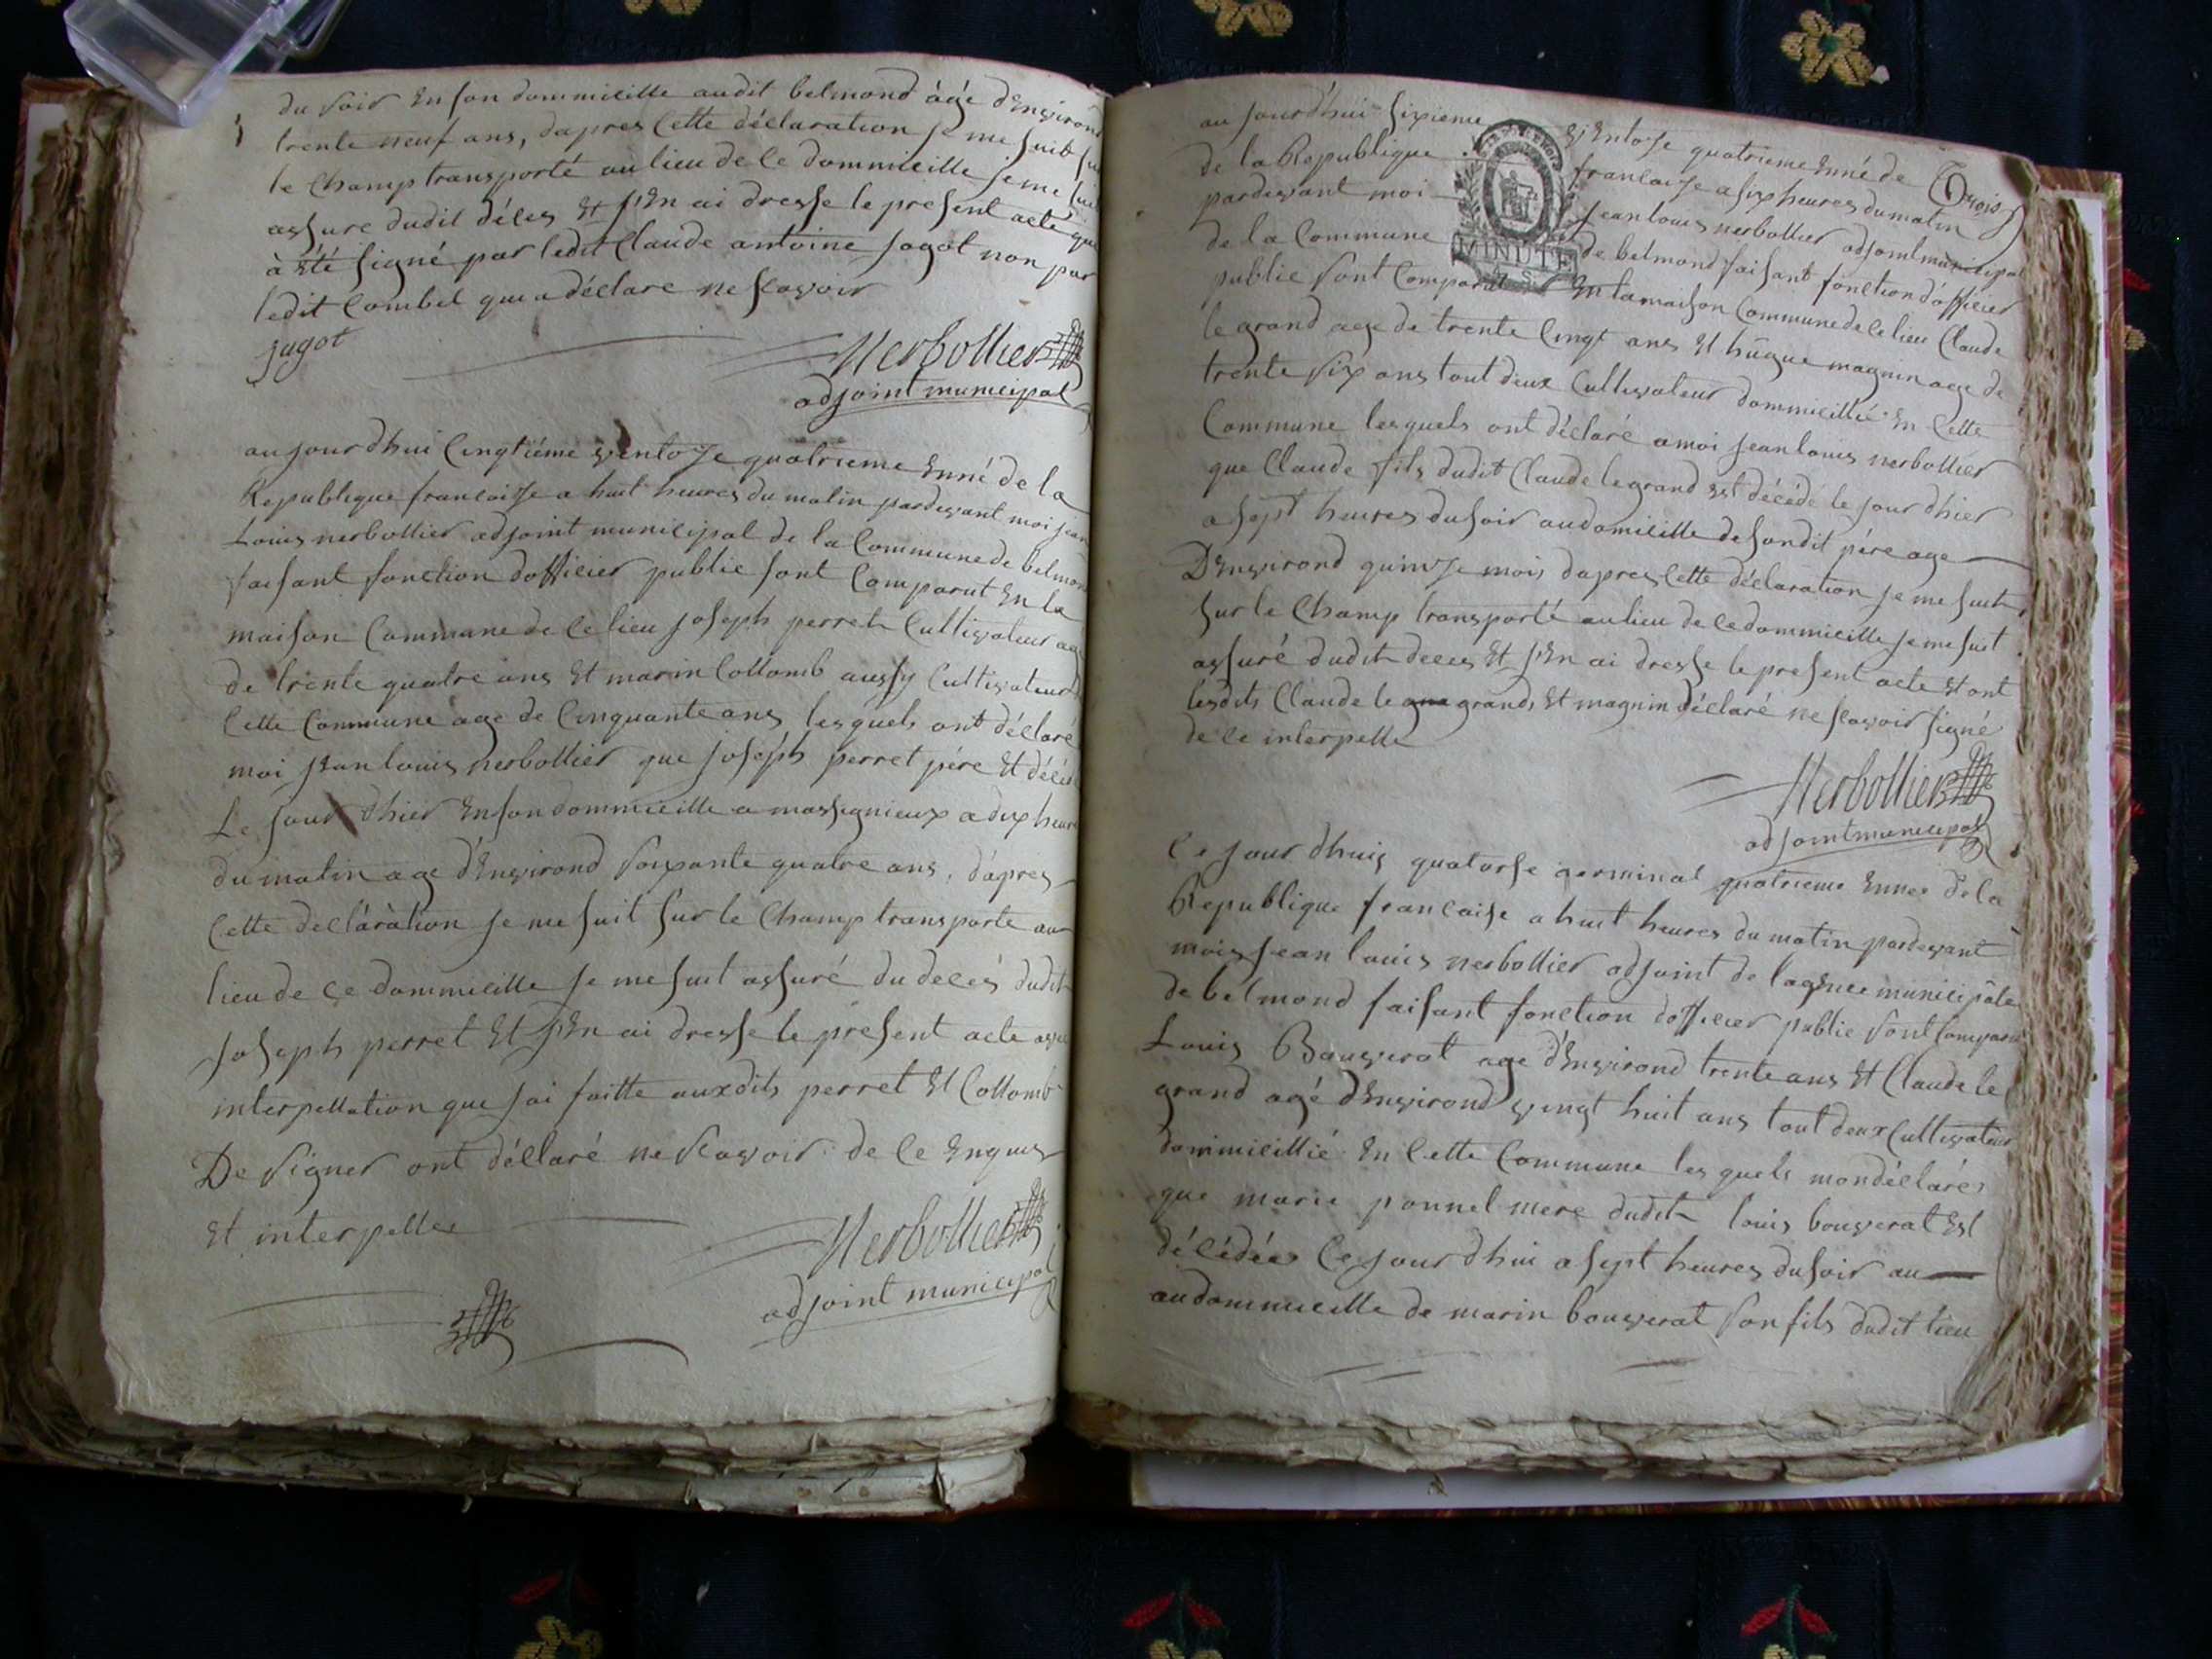 du soir En son dommicille audit belmond àgé dEnvirond
trente neuf ans, dapres Cette déclaration je me suit sur
le Champ transporté au lieu de Ce dommicille je me suit
assure dudit déces Et j'En ai dresse le present acte qui
à été signé par ledit Claude antoine jagot non par
ledit Combet qui a déclare ne scavoir
jagot
Nerbollier
adjoint municipal
aujourdhui Cinqtiéme ventose quatrieme Enné de la
Republique francaisse a huit heures du matin pardevant moi jean
Louis nerbollier adjoint municipal de la Commune de belmond
faisant fonction dofficier public sont Comparut En la
maison Commune de Ce lieu joseph perret Cultivateur age
de trente quatre ans Et marin Collomb aussy Cultivateur
Cette Commune age de Cinquante ans lesquels ont déclaré
moi jean louis nerbollier que joseph perret pére Et décédé
Le jour dhier En son dommicille a massignieux a dix heures
du matin age d'Environd soixante quatre ans, d'apres
Cette declàràtion je me suit sur le Champ transporte au
lieu de Ce dommicille je me suit assuré du decés dudit
joseph perret Et j'En ai dresse le present acte avec
interpellation que jai faitte auxdits perret Et Collomb
De signer ont déclaré ne scavoir de Ce Enquis
Et interpelles
Nerbollier
adjoint municipal
Trois
au jourdhui sixieme ventose quatrieme Enné de
de la Republique francaise a six heures du matin
pardevant moi jean louis nerbollier adjoint municipal
de la Commune de belmond faisant fonction d'officier
MINUTE
public sont Comparut En la maison Commune de Ce lieu Claude
le grand age de trente Cinqt ans Et hûgue magnin age de
trente six ans tout deux Cultivateur dommicillié En Cette
Commune lesquels ont déclaré a moi jean louis nerbollier
que Claude fils dudit Claude le grand Est décédé le jour dhier
a sept heures du soir au domicille de son dit pére age
D'Environd quinse mois dapres Cette déclaration je me suit
sur le Champ transporté au lieu de Ce dommicille je me suit
assuré dudit deces Et j'En ai dresse le present acte Et ont
lesdits Claude le grand, Et magnin déclaré ne scavoir signé
de Ce interpelle
Nerbollier
adjoint municipal
Ce jour dhuis quatorse germinal quatrieme Ennee de la
Republique francaise a huit heures du matin pardevant
mois jean louis nerbollier adjoint de lagence municipâle
de bélmond faisant fonction dofficier public sont Comparu
Louis Bouverat age d'Environd trente ans Et Claude le
grand agé dEnvirond vingt huit ans tout deux Cultivateur
dommicillié En Cette Commune les quels mon déclarés
que marie ponnet mere dudit louis bouverat Est
décédée Ce jour dhui a sept heures du soir au
au dommicille de marin bouverat son fils dudit lieu